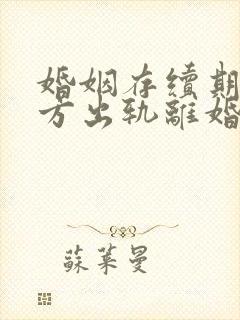 婚姻存續期
方出軌離婚
蘇萊曼